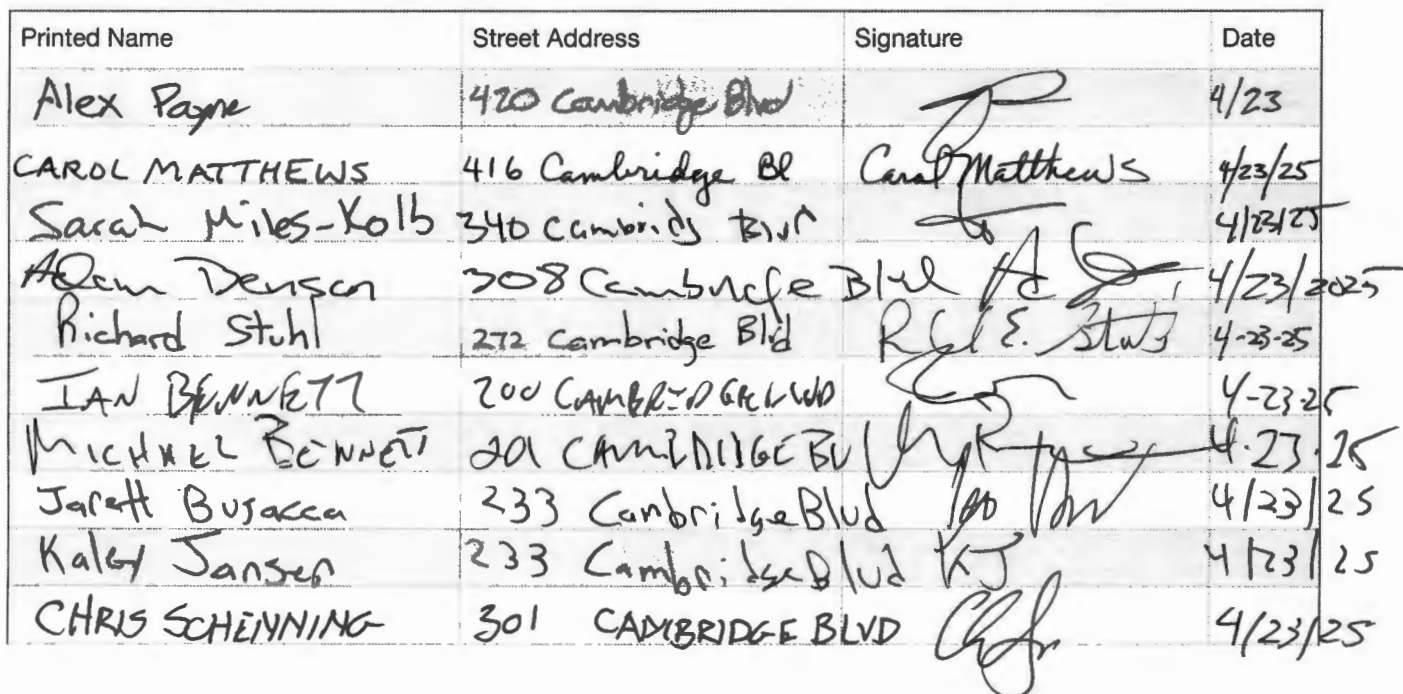 Printed Name Street Address Signature Date
Alex Payne 420 Cambridge Blvd 4/23
CAROL MATTHEWS 416 Cambridge Bl Carol Matthews 4/23/25
Sarah Miles-Kolb 340 Cambridg Blvd 4/23/25
Adam Denison 308 Cambridge Blvd 4/23/2025
Richard Stuhl 272 Cambridge Blvd 4-23-25
IAN BENNETT 200 CAMBRIDGE BLVD 4-23-25
MICHAEL BENNETT 201 CAMBRIDGE BLV 4.23.25
Jarett Busacca 233 Cambridge Blvd 4/23/25
Kaley Jansen 233 Cambridge Blvd KJ 4/23/25
CHRIS SCHENNING 301 CAMBRIDGE BLVD 4/23/25